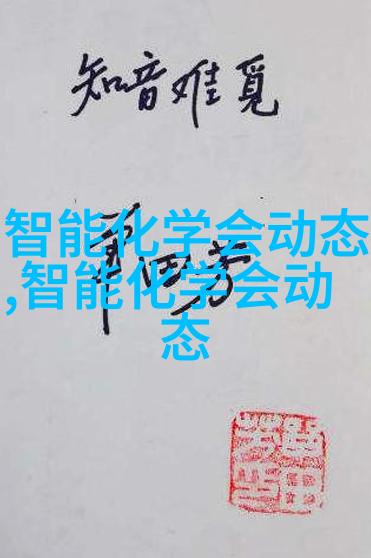 知音难觅
单田芳
智能化学会动态
,智能化学会动
态